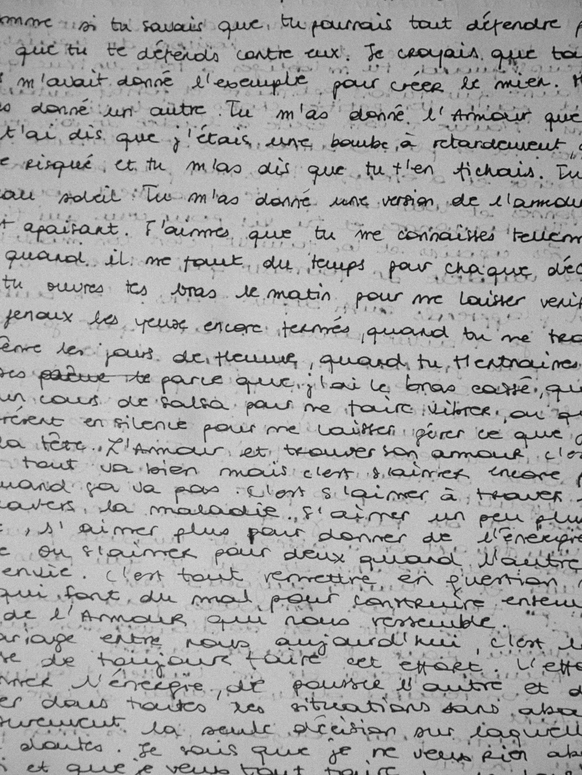 comme si tu savais que tu pourrais tout défendre
que tu te défends contre eux. Je croyais que
m'avait donné l'exemple pour créer le mien.
donné un autre. Tu m'as donné l'Amour que
t'ai dis que j'étais une bombe à retardement
risqué et tu m'as dis que tu t'en fichais. Tu
au soleil. Tu m'as donné une version de l'amour
apaisant. J'aimes que tu me connaisses tellement
quand il me faut du temps pour chaque
tu ouvres tes bras le matin pour me laisser
genoux les yeux encore fermés, quand tu me
les jours de flemme, quand tu t'entraînes
parce que j'ai le bras cassé,
un cours de salsa pour me faire vibrer, ou
en silence pour me laisser gérer ce que
la tête. L'Amour et trouver son amour, c'est
tout va bien mais c'est s'aimer encore
quand ça va pas. C'est s'aimer à travers
travers la maladie, s'aimer un peu plus
, s'aimer plus pour donner de l'énergie
ou s'aimer pour deux quand l'autre
envie. C'est tout remettre en question
qui font du mal pour construire
de l'Amour qui nous ressemble.
mariage entre nous aujourd'hui, c'est
de toujours faire cet effort.
l'énergie, de pousser l'autre et
dans toutes les situations sans
la seule décision sur laquelle
doutes. Je sais que je ne veux rien
et que je veux tout faire